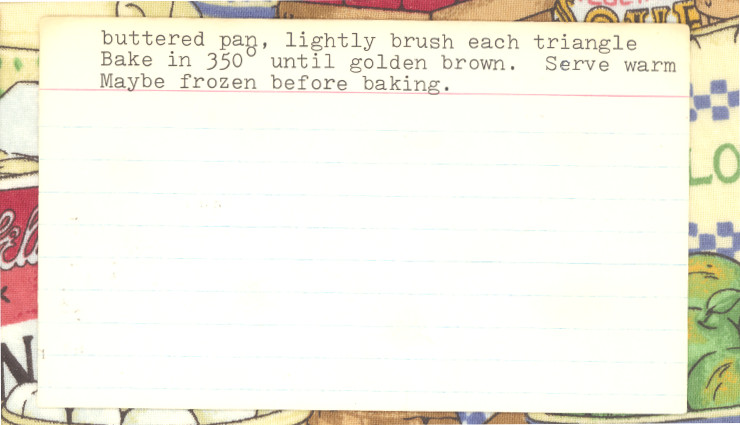 buttered pan, lightly brush each triangle
Bake in 350° until golden brown.  Serve warm
Maybe frozen before baking.
LO
N